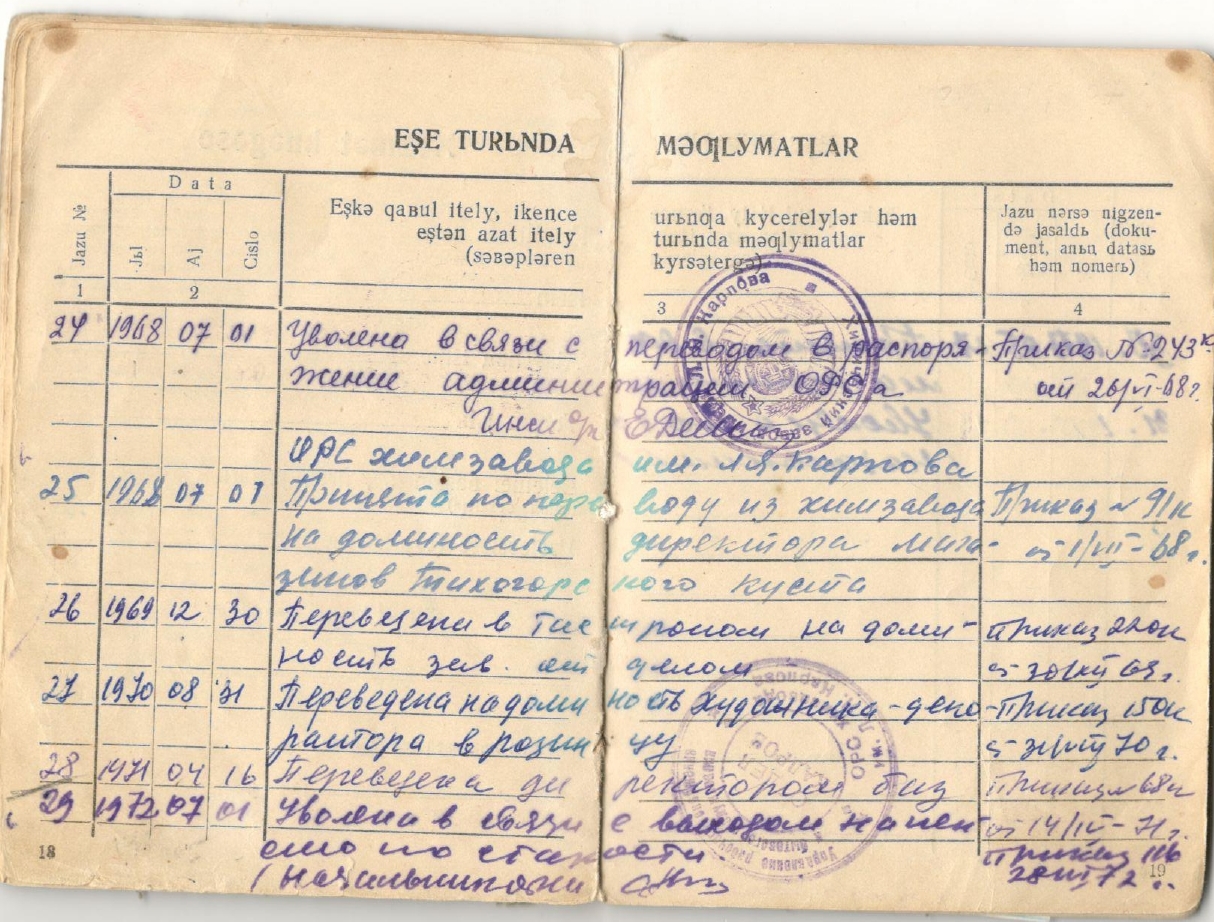 EŞE TURЬNDA MƏƢLYMATLAR
Jazu №
Data
Jьl
Aj
Cislo
Eşkə qaвul itely, ikence urьnƣa kycerelylər həm
eştən azat itely turьnda məƣlymatlar
(səвəpləren kyrsətergə)
Jazu nərsə nigzen-
də jasaldь (doku-
ment, anьꞑ datasь
həm nomerь)
1 2 3 4
24 1968 07 01 Уволена в связи с переводом в распоря- Приказ №243к
жение администрации ОРСа от 26/VI-68 г.
ОРС химзавода им. Л.Я. Карпова
25 1968 07 01 Принята по переводу из химзавода Приказ №91к
на должность директора мага- от 1/VII-68 г.
зинов Тихогорского куста
26 1969 12 30 Переведена в Гастроном на долж- Приказ 220к
ность зав. отделом от 30/XII 69 г.
27 1970 08 31 Переведена на должность художника-деко- Приказ 150к
ратора в розницу от 31/VIII 70 г.
28 1971 04 16 Переведена директором баз Приказ №68к
от 14/IV-71 г.
29 1972 07 01 Уволена в связи с выходом на пен-
сию по старости Приказ 116
28/VI 72 г.
(Начальник
18
19